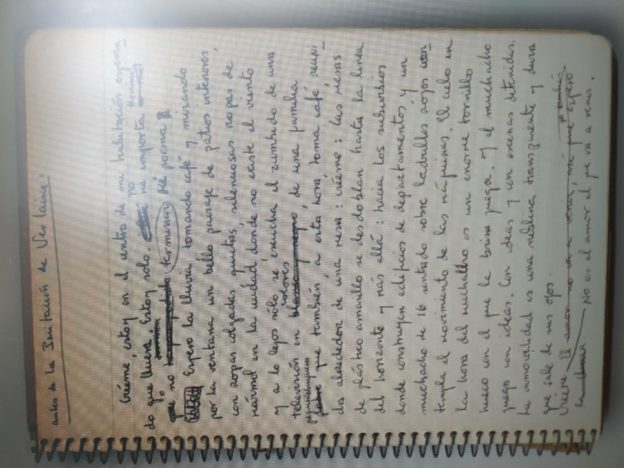 antes de la Imitación de Verlaine.
Créeme, estoy en el centro de mi habitación esperan
do que llueva. Estoy solo. no me importa terminar
que no terminar mi poema
Espero la lluvia tomando café y mirando
por la ventana un bello paisaje de patios interiores
con ropas colgadas quietas, silenciosas ropas de
mármol en la ciudad donde no existe el viento
y a lo lejos sólo se escucha el zumbido de una
televisión en colores blanco y negro, de una familia
que también, a esta hora toma café, reuni
da alrededor de una mesa: créeme: las mesas
de plástico amarillo se desdoblan hasta la línea
del horizonte y más allá: hacia los suburbios
donde construyen edificios de departamentos, y un
muchacho de 16 sentado sobre ladrillos rojos con
templa el movimiento de las máquinas. El cielo en
la hora del muchacho es un enorme tornillo
hueco con el que la brisa juega. Y el muchacho
juega con ideas. Con ideas y con escenas detenidas.
La inmovilidad es una neblina transparente y dura
que sale de sus ojos.
Créeme El amor no va a venir, así que espero
la lluvia No es el amor el que va a venir.